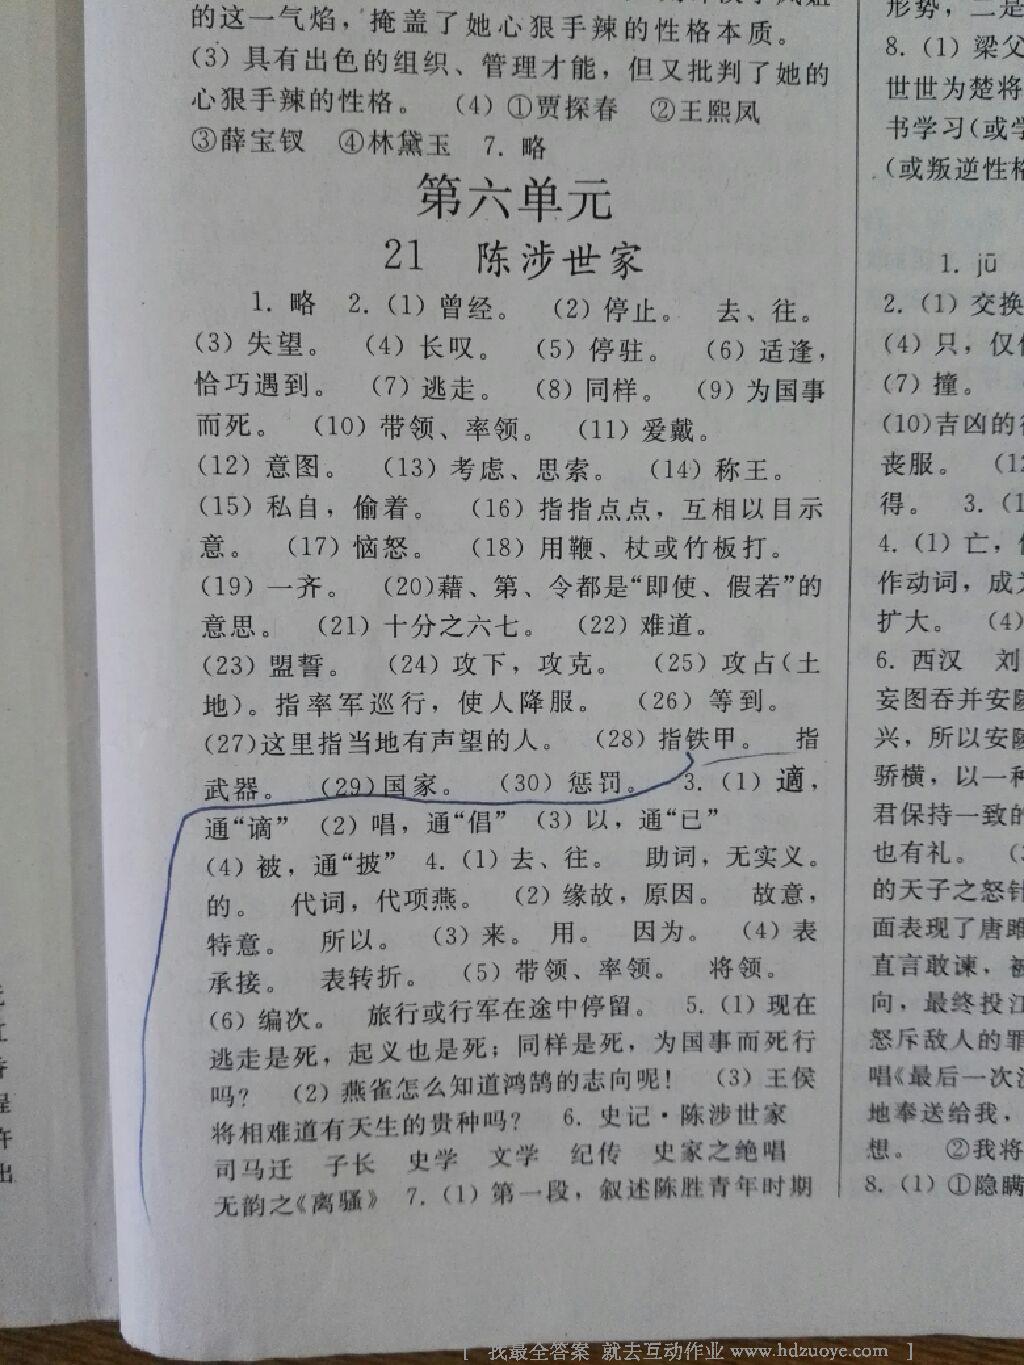 的这一气焰，掩盖了她心狠手辣的性格本质。
(3) 具有出色的组织、管理才能，但又批判了她的
心狠手辣的性格。 (4) ①贾探春 ②王熙凤
③薛宝钗 ④林黛玉 7. 略
第六单元
21 陈涉世家
1. 略 2. (1) 曾经。 (2) 停止。 去、往。
(3) 失望。 (4) 长叹。 (5) 停驻。 (6) 适逢，
恰巧遇到。 (7) 逃走。 (8) 同样。 (9) 为国事
而死。 (10) 带领、率领。 (11) 爱戴。
(12) 意图。 (13) 考虑、思索。 (14) 称王。
(15) 私自，偷着。 (16) 指指点点，互相以目示
意。 (17) 恼怒。 (18) 用鞭、杖或竹板打。
(19) 一齐。 (20)藉、第、令都是“即使、假若”的
意思。 (21) 十分之六七。 (22) 难道。
(23) 盟誓。 (24) 攻下，攻克。 (25) 攻占(土
地)。指率军巡行，使人降服。 (26) 等到。
(27)这里指当地有声望的人。 (28) 指铁甲。 指
武器。 (29)国家。 (30) 惩罚。 3. (1) 適，
通“谪” (2) 唱，通“倡” (3) 以，通“已”
(4) 被，通“披” 4. (1) 去、往。 助词，无实义。
的。 代词，代项燕。 (2) 缘故，原因。 故意，
特意。 所以。 (3) 来。 用。 因为。 (4) 表
承接。 表转折。 (5) 带领、率领。 将领。
(6) 编次。 旅行或行军在途中停留。 5. (1) 现在
逃走是死，起义也是死；同样是死，为国事而死行
吗？ (2) 燕雀怎么知道鸿鹄的志向呢！ (3) 王侯
将相难道有天生的贵种吗？ 6. 史记·陈涉世家
司马迁 子长 史学 文学 纪传 史家之绝唱
无韵之《离骚》 7. (1) 第一段，叙述陈胜青年时期
形势，二是
8. (1) 梁父
世世为楚将
书学习(或学
(或叛逆性格
1. jū
2. (1) 交换
(4) 只，仅
(7) 撞。
(10)吉凶的
丧服。 (12
得。 3. (1
4. (1) 亡，
作动词，成
扩大。 (4)
6. 西汉 刘
妄图吞并安陵
兴，所以安陵
骄横，以一种
君保持一致的
也有礼。
的天子之怒针
面表现了唐雎
直言敢谏，被
向，最终投江
怒斥敌人的罪
唱《最后一次
地奉送给我，
想。 ②我将
8. (1) ①隐瞒
[ 我最全答案 就去互动作业 www.hdzuoye.com ]